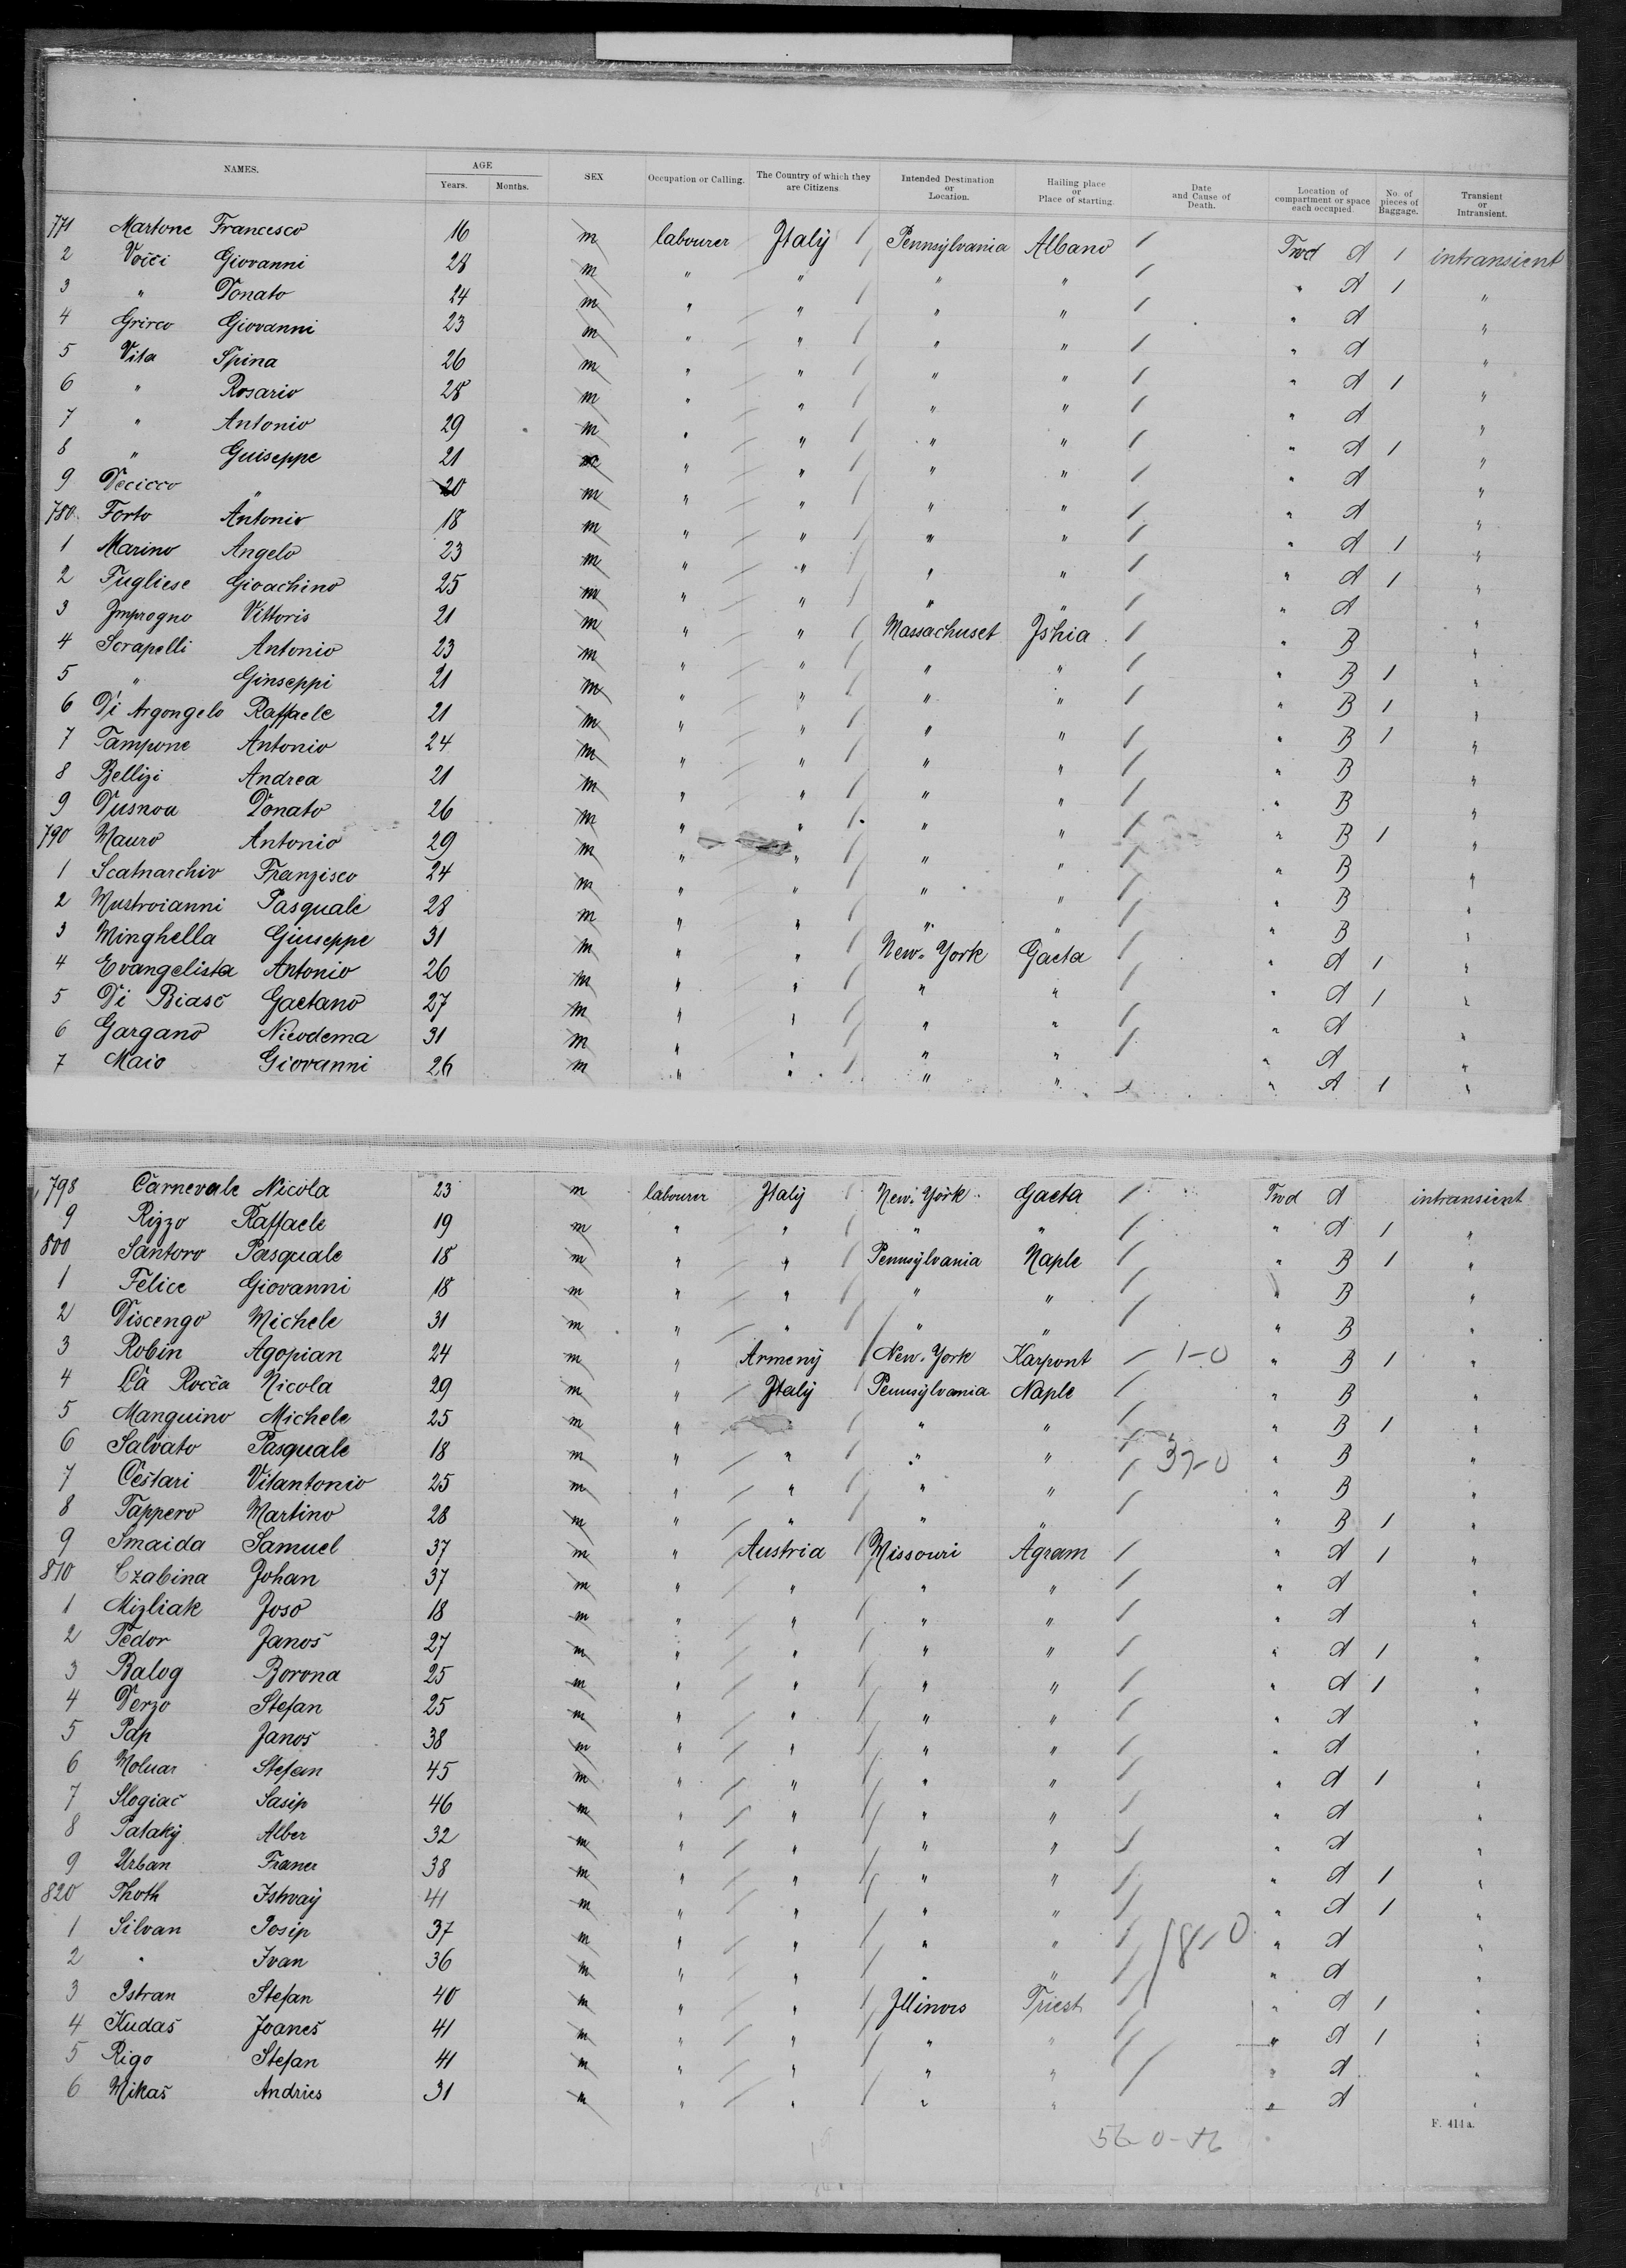 NAMES. AGE SEX Occupation or Calling. The Country of which they are Citizens Intended Destination or Location. Hailing place or Place of starting. Date and Cause of Death. Location of compartment or space each occupied. No. of pieces of Baggage. Transient or Intransient.
Years. Months.
771 Martone Francesco 16 m labourer Italy Pennsylvania Albano Twd A 1 intransient
2 Vocci Giovanni 28 m " " " " " A 1 "
3 " Donato 24 m " " " " " A "
4 Grirco Giovanni 23 m " " " " " A "
5 Vita Spina 26 m " " " " " A 1 "
6 " Rosario 28 m " " " " " A "
7 " Antonio 29 m " " " " " A 1 "
8 " Guiseppe 21 " " " " " A "
9 Decicco " 20 m " " " " " A "
780 Forto Antonio 18 m " " " " " A 1 "
1 Marino Angelo 23 m " " " " " A 1 "
2 Fugliese Gioachino 25 m " " " " " A "
3 Improgno Vittoris 21 m " " Massachuset Ishia " B "
4 Scrapelli Antonio 23 m " " " " " B 1 "
5 " Ginseppi 21 m " " " " " B 1 "
6 Di Argongelo Raffaele 21 m " " " " " B 1 "
7 Tampone Antonio 24 m " " " " " B "
8 Bellizi Andrea 21 m " " " " " B "
9 Dusnoa Donato 26 m " " " " " B 1 "
790 Mauro Antonio 29 m " " " " " B "
1 Scatnarchio Franzisco 24 m " " " " " B "
2 Mustroianni Pasquale 28 m " " " " " B "
3 Minghella Giuseppe 31 m " " New-York Gaeta " A 1 "
4 Evangelista Antonio 26 m " " " " " A 1 "
5 Di Biaso Gaetano 27 m " " " " " A "
6 Gargano Nicodema 31 m " " " " " A "
7 Maio Giovanni 26 m " " " " " A 1 "
798 Carnevale Nicola 23 m labourer Italy New-York Gaeta Twd A intransient
9 Rizzo Raffaele 19 m " " " " " A 1 "
800 Santoro Pasquale 18 m " " Pennsylvania Naple " B 1 "
1 Felice Giovanni 18 m " " " " " B "
2 Discengo Michele 31 m " " " " " B "
3 Robin Agopian 24 m " Armeny New-York Karpont 1-0 " B 1 "
4 La Rocca Nicola 29 m " Italy Pennsylvania Naple " B "
5 Manguino Michele 25 m " " " " B 1 "
6 Salvato Pasquale 18 m " " " " 37-0 " B "
7 Cestari Vitantonio 25 m " " " " " B "
8 Tappero Martino 28 m " " " " " B 1 "
9 Smaida Samuel 37 m " Austria Missouri Agram " A 1 "
810 Czabina Johan 37 m " " " " " A "
1 Mizliak Joso 18 m " " " " " A "
2 Fedor Janos 27 m " " " " " A 1 "
3 Balog Borona 25 m " " " " " A 1 "
4 Derzo Stefan 25 m " " " " " A "
5 Pap Janos 38 m " " " " " A "
6 Moluar Stefan 45 m " " " " " A 1 "
7 Slogiac Sasip 46 m " " " " " A "
8 Pataky Alber 32 m " " " " " A "
9 Urban Franer 38 m " " " " " A 1 "
820 Thoth Istvay 41 m " " " " " A 1 "
1 Silvan Josip 37 m " " " " 18-0 " A "
2 " Ivan 36 m " " " " " A "
3 Istran Stefan 40 m " " Illinois Triest " A 1 "
4 Kudas Joanes 41 m " " " " " A 1 "
5 Rigo Stefan 41 m " " " " " A "
6 Mikas Andries 31 m " " " " " A "
F. 411a.